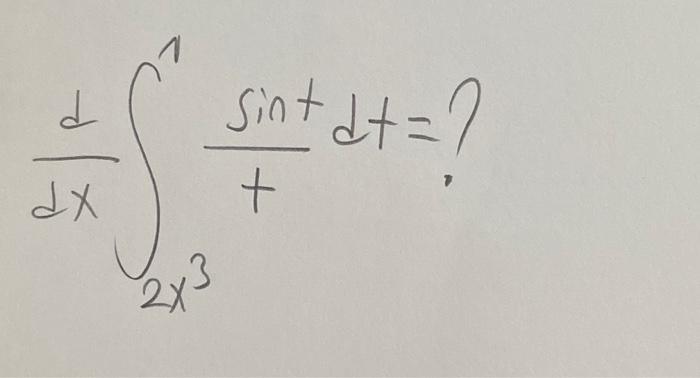 d/dx ∫_{2x^3}^{1} sint/t dt=?